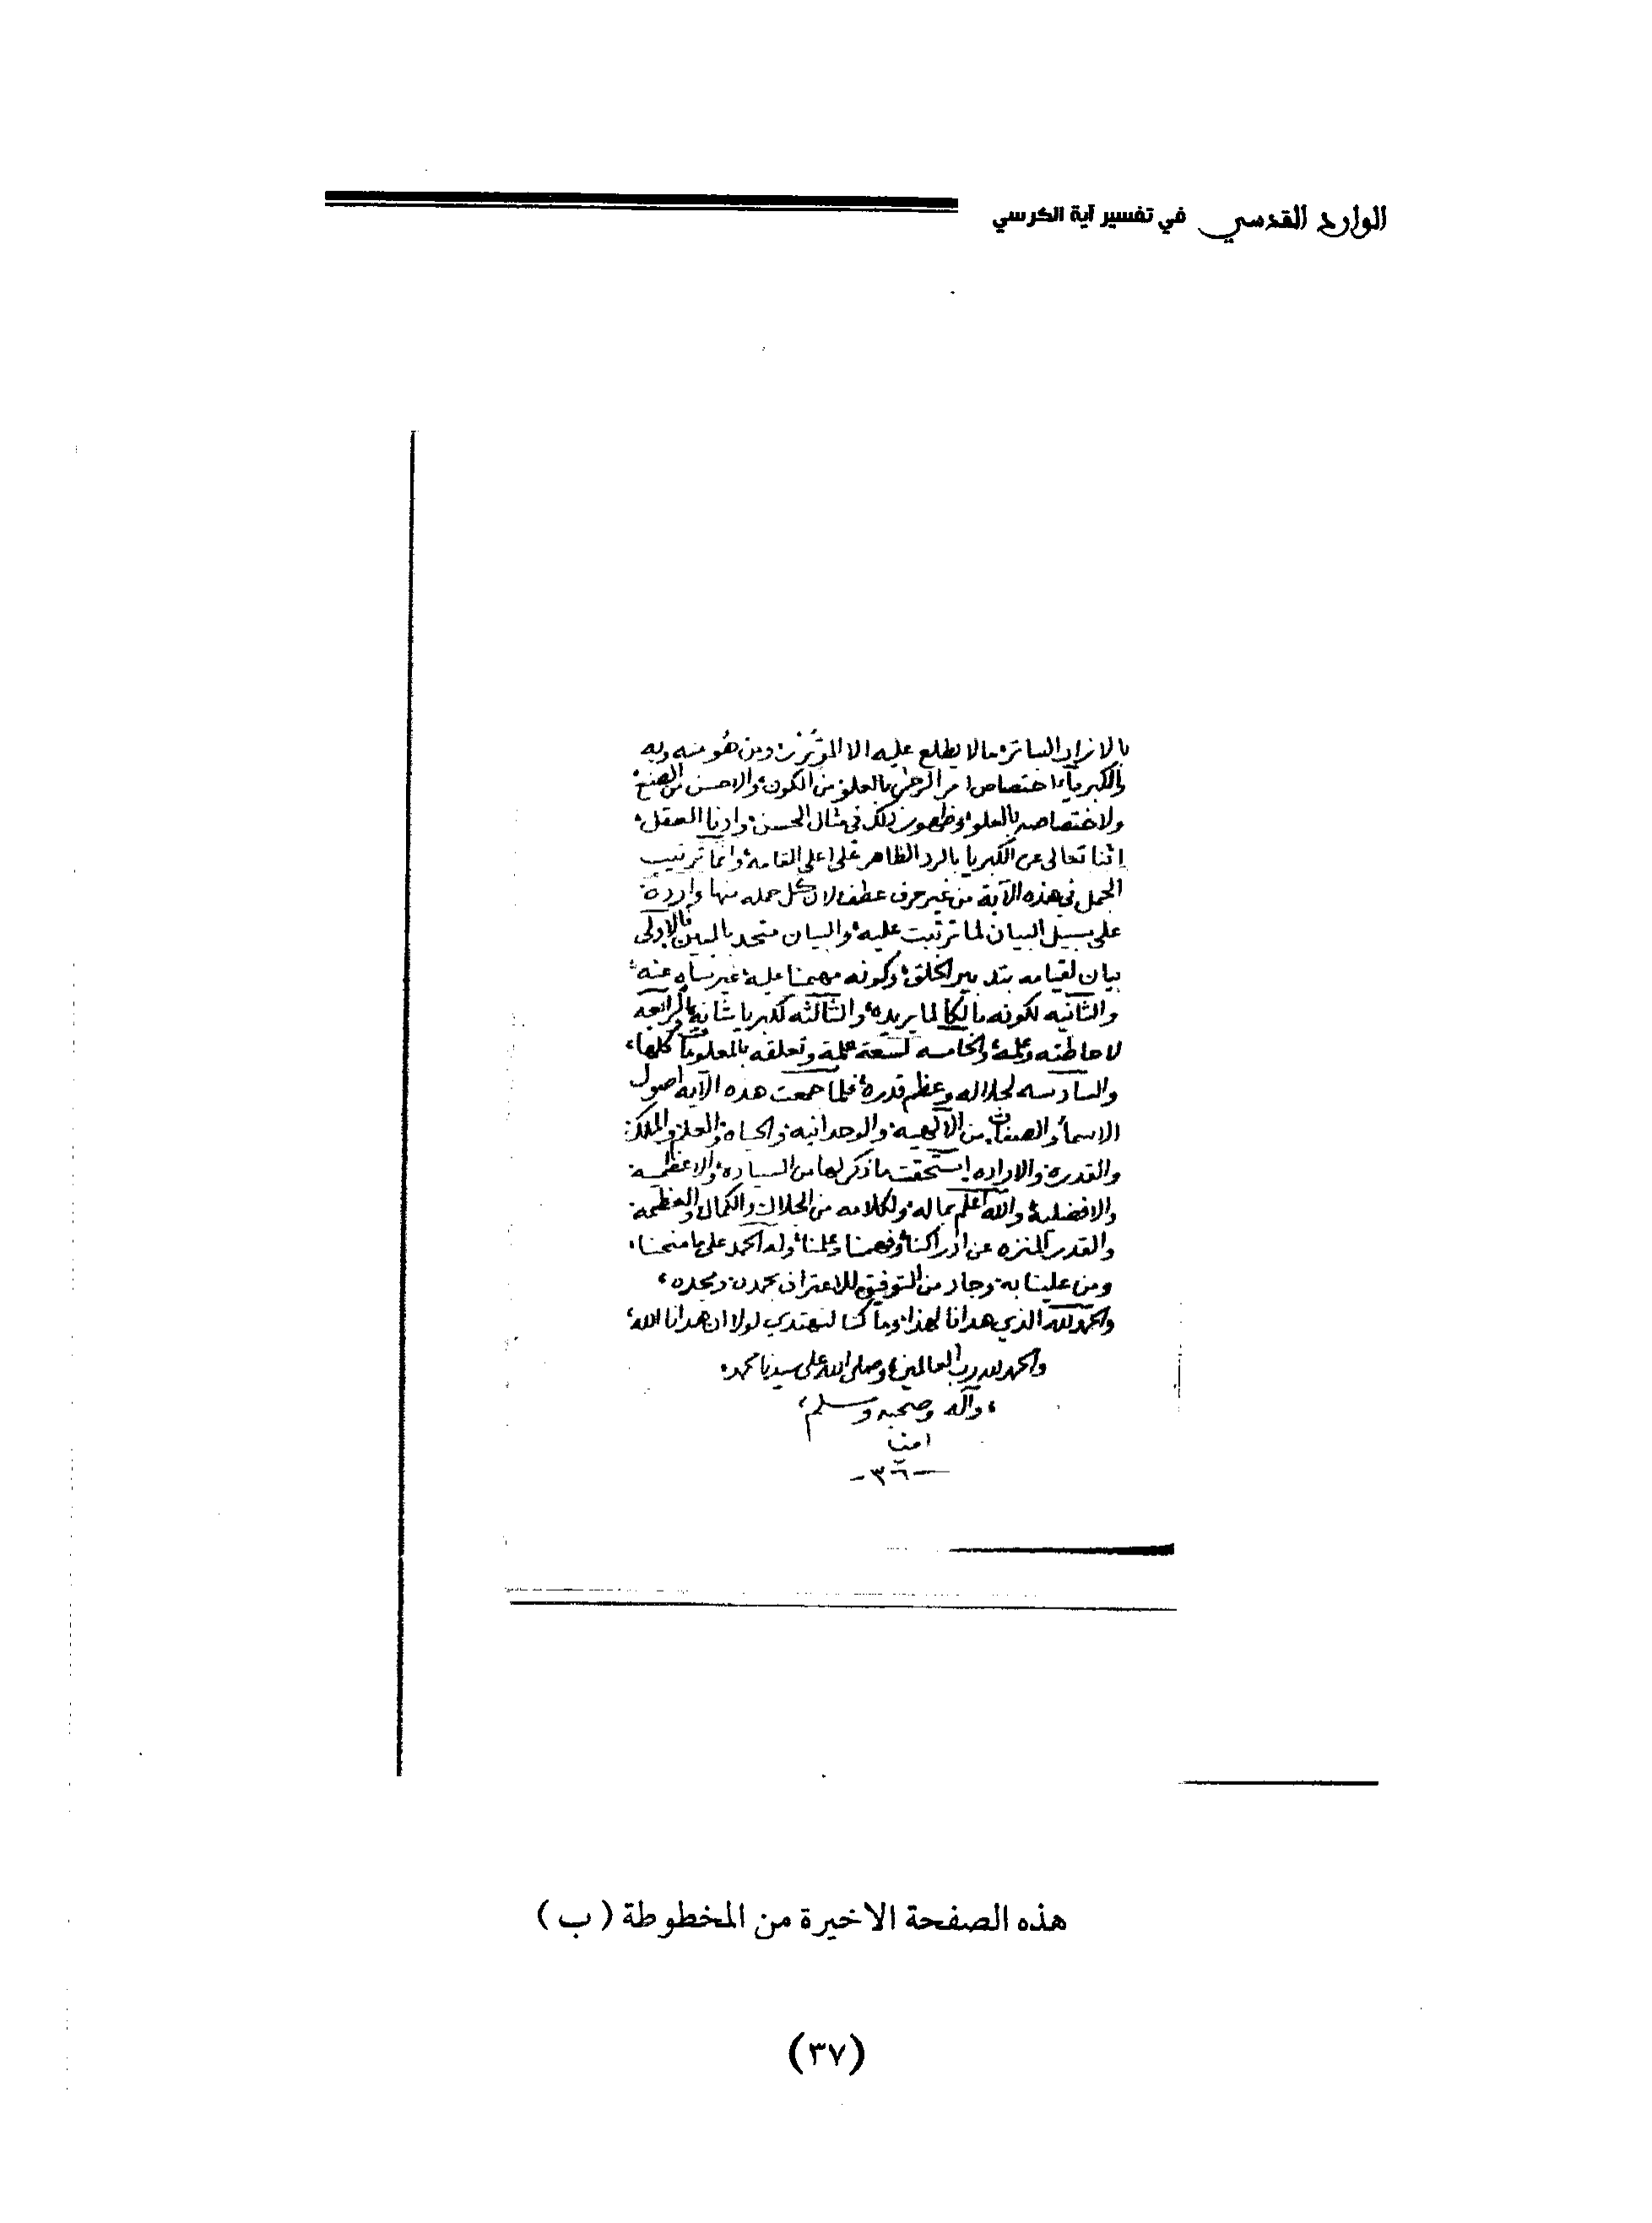 الوارد القدسي في تفسير آية الكرسي
مالا يطلع عليه الا ومن هو منه وبه
والكبرياء اختصاص امر بالعلو من الكون والاحسن من الصنع
ولاختصاصه بالعلو وظهور ذلك في مثال الحسن وادنا العقل
تعالى عن الكبريا بالرد الظاهر على اعلى القامة وانما ترتيب
الجمل في هذه الآية من غير حرف عطف لان كل جمله منها واردة
على سبيل البيان لما ترتبت عليه والبيان متحد بالمبين فالاولى
بيان لقيامه بتدبير الخلق وكونه مهيمنا عليه غير ساه عنه
والثانيه لكونه مالكا لما يريده والثالثه لكبريا شانه والرابعه
لاحاطته وعلمه والخامسه لسعة علمه وتعلقه بالمعلومات كلها
والسادسه لجلاله وعظم قدره فلما جمعت هذه الآيه اصول
الاسما والصفات من الالهيه والوحدانيه والحياه والعلم والملك
والقدرة والاراده استحقت ما ذكر لها من السياده والاعظميه
والافضليه والله اعلم بماله ولكلامه من الجلال والكمال والعظمه
والقدر المنزه عن ادراكنا وفهمنا وعلمنا وله الحمد على ما منحنا
ومن علينا به وجاد من التوفيق للاعتراف بحمده ومجده
والحمد لله الذي هدانا لهذا وما كنا لنهتدي لولا ان هدانا الله
والحمد لله رب العالمين وصلى الله على سيدنا محمد
وآله وصحبه وسلم
امين
-٣٦-
هذه الصفحة الاخيرة من المخطوطة (ب)
(٣٧)